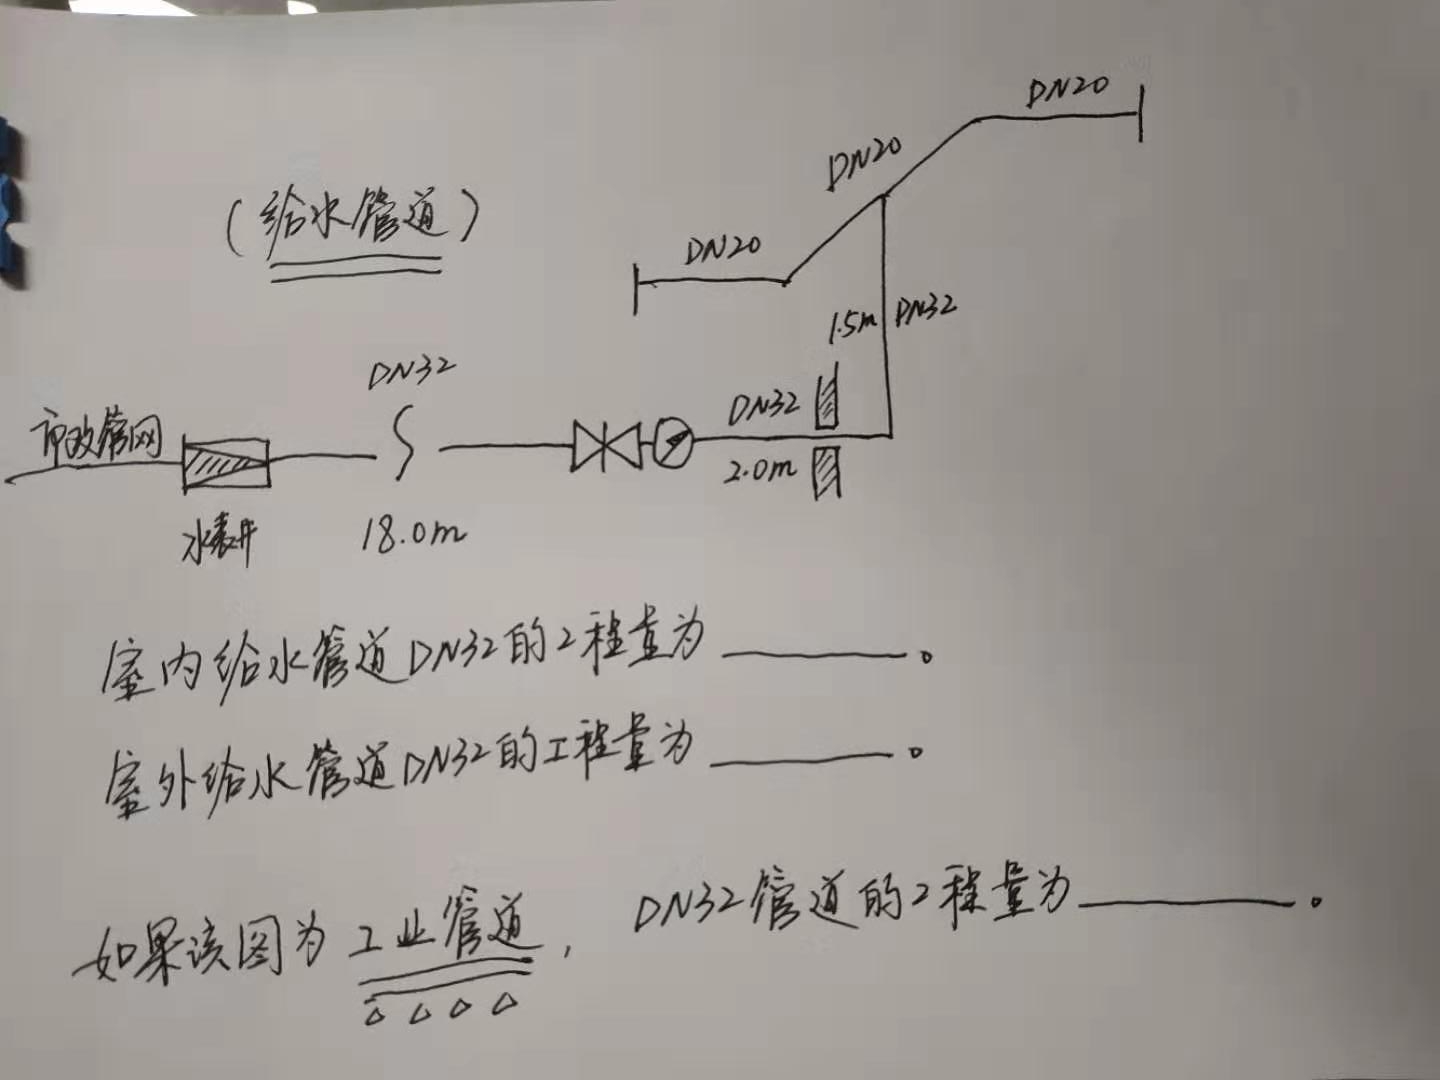 DN20
DN20
(给水管道)
DN20
1.5m DN32
DN32
市政管网
DN32
2.0m
水表井
18.0m
室内给水管道DN32的工程量为________。
室外给水管道DN32的工程量为________。
如果该图为工业管道, DN32管道的工程量为________。